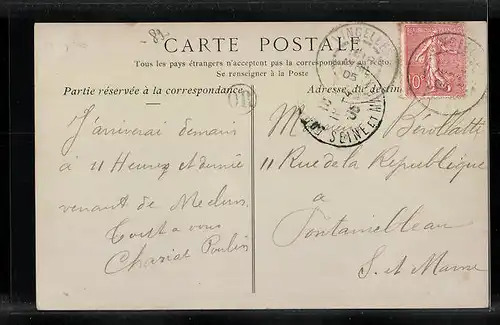 -82
CARTE POSTALE
Tous les pays étrangers n'acceptent pas la correspondance au recto.
Se renseigner à la Poste
Partie réservée à la correspondance
Adresse du destin
J'arriverai demain
à 11 Heures et demie
venant de Melun
Tout a vous
OR
M Bérollatti
11 Rue de la République
a
Fontainebleau
S. et Marne
SEINE ET M
05
10